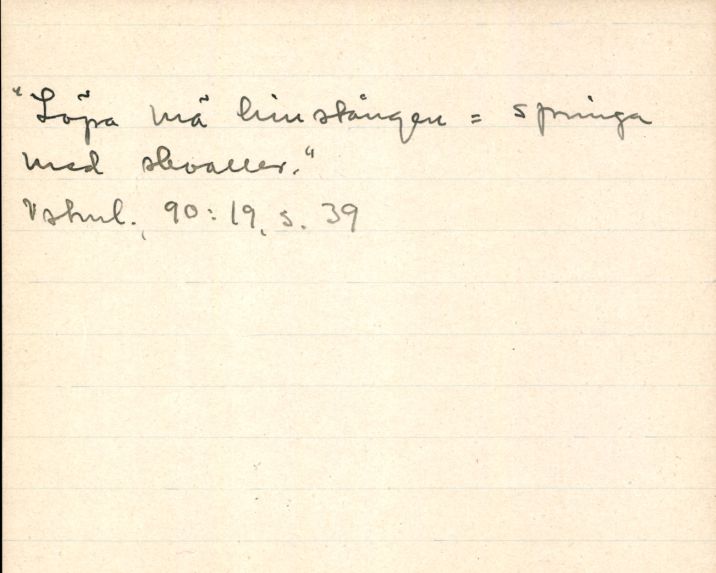 "Löpa mä limstången = springa
med skvaller."
Vskml., 90:19, s. 39